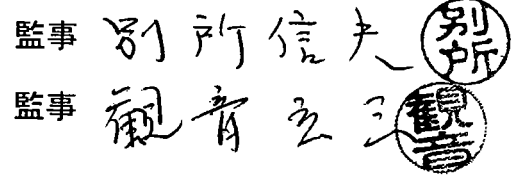 監事 別所信夫 別所
監事 観音玄三 観音